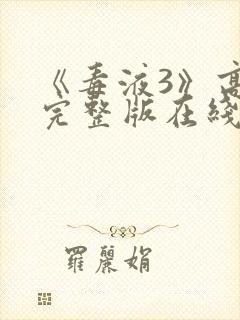 《毒液3》高
完整版在綫
羅麗娟